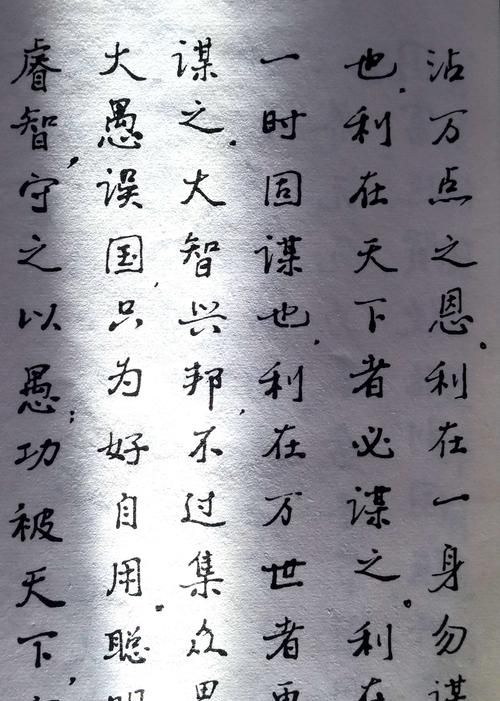 沾万点之恩。利在一身勿谋
也。利在天下者必谋之。利在
一时固谋也,利在万世者更
谋之。大智兴邦,不过集众思
大愚误国,只为好自用。聪明
睿智,守之以愚;功被天下,